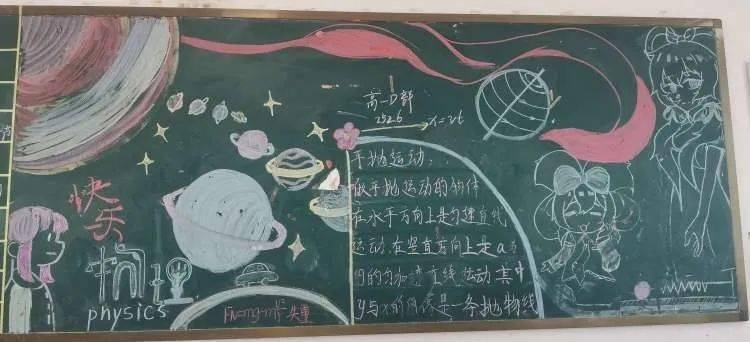 快乐
物理
physics
FN=mg-mv²/r 失重
高一D部
2526
x=vt
平抛运动：
做平抛运动的物体
在水平方向上是匀速直线
运动.在竖直方向上是a为
g的匀加速直线运动.其中
y与x的图像是一条抛物线